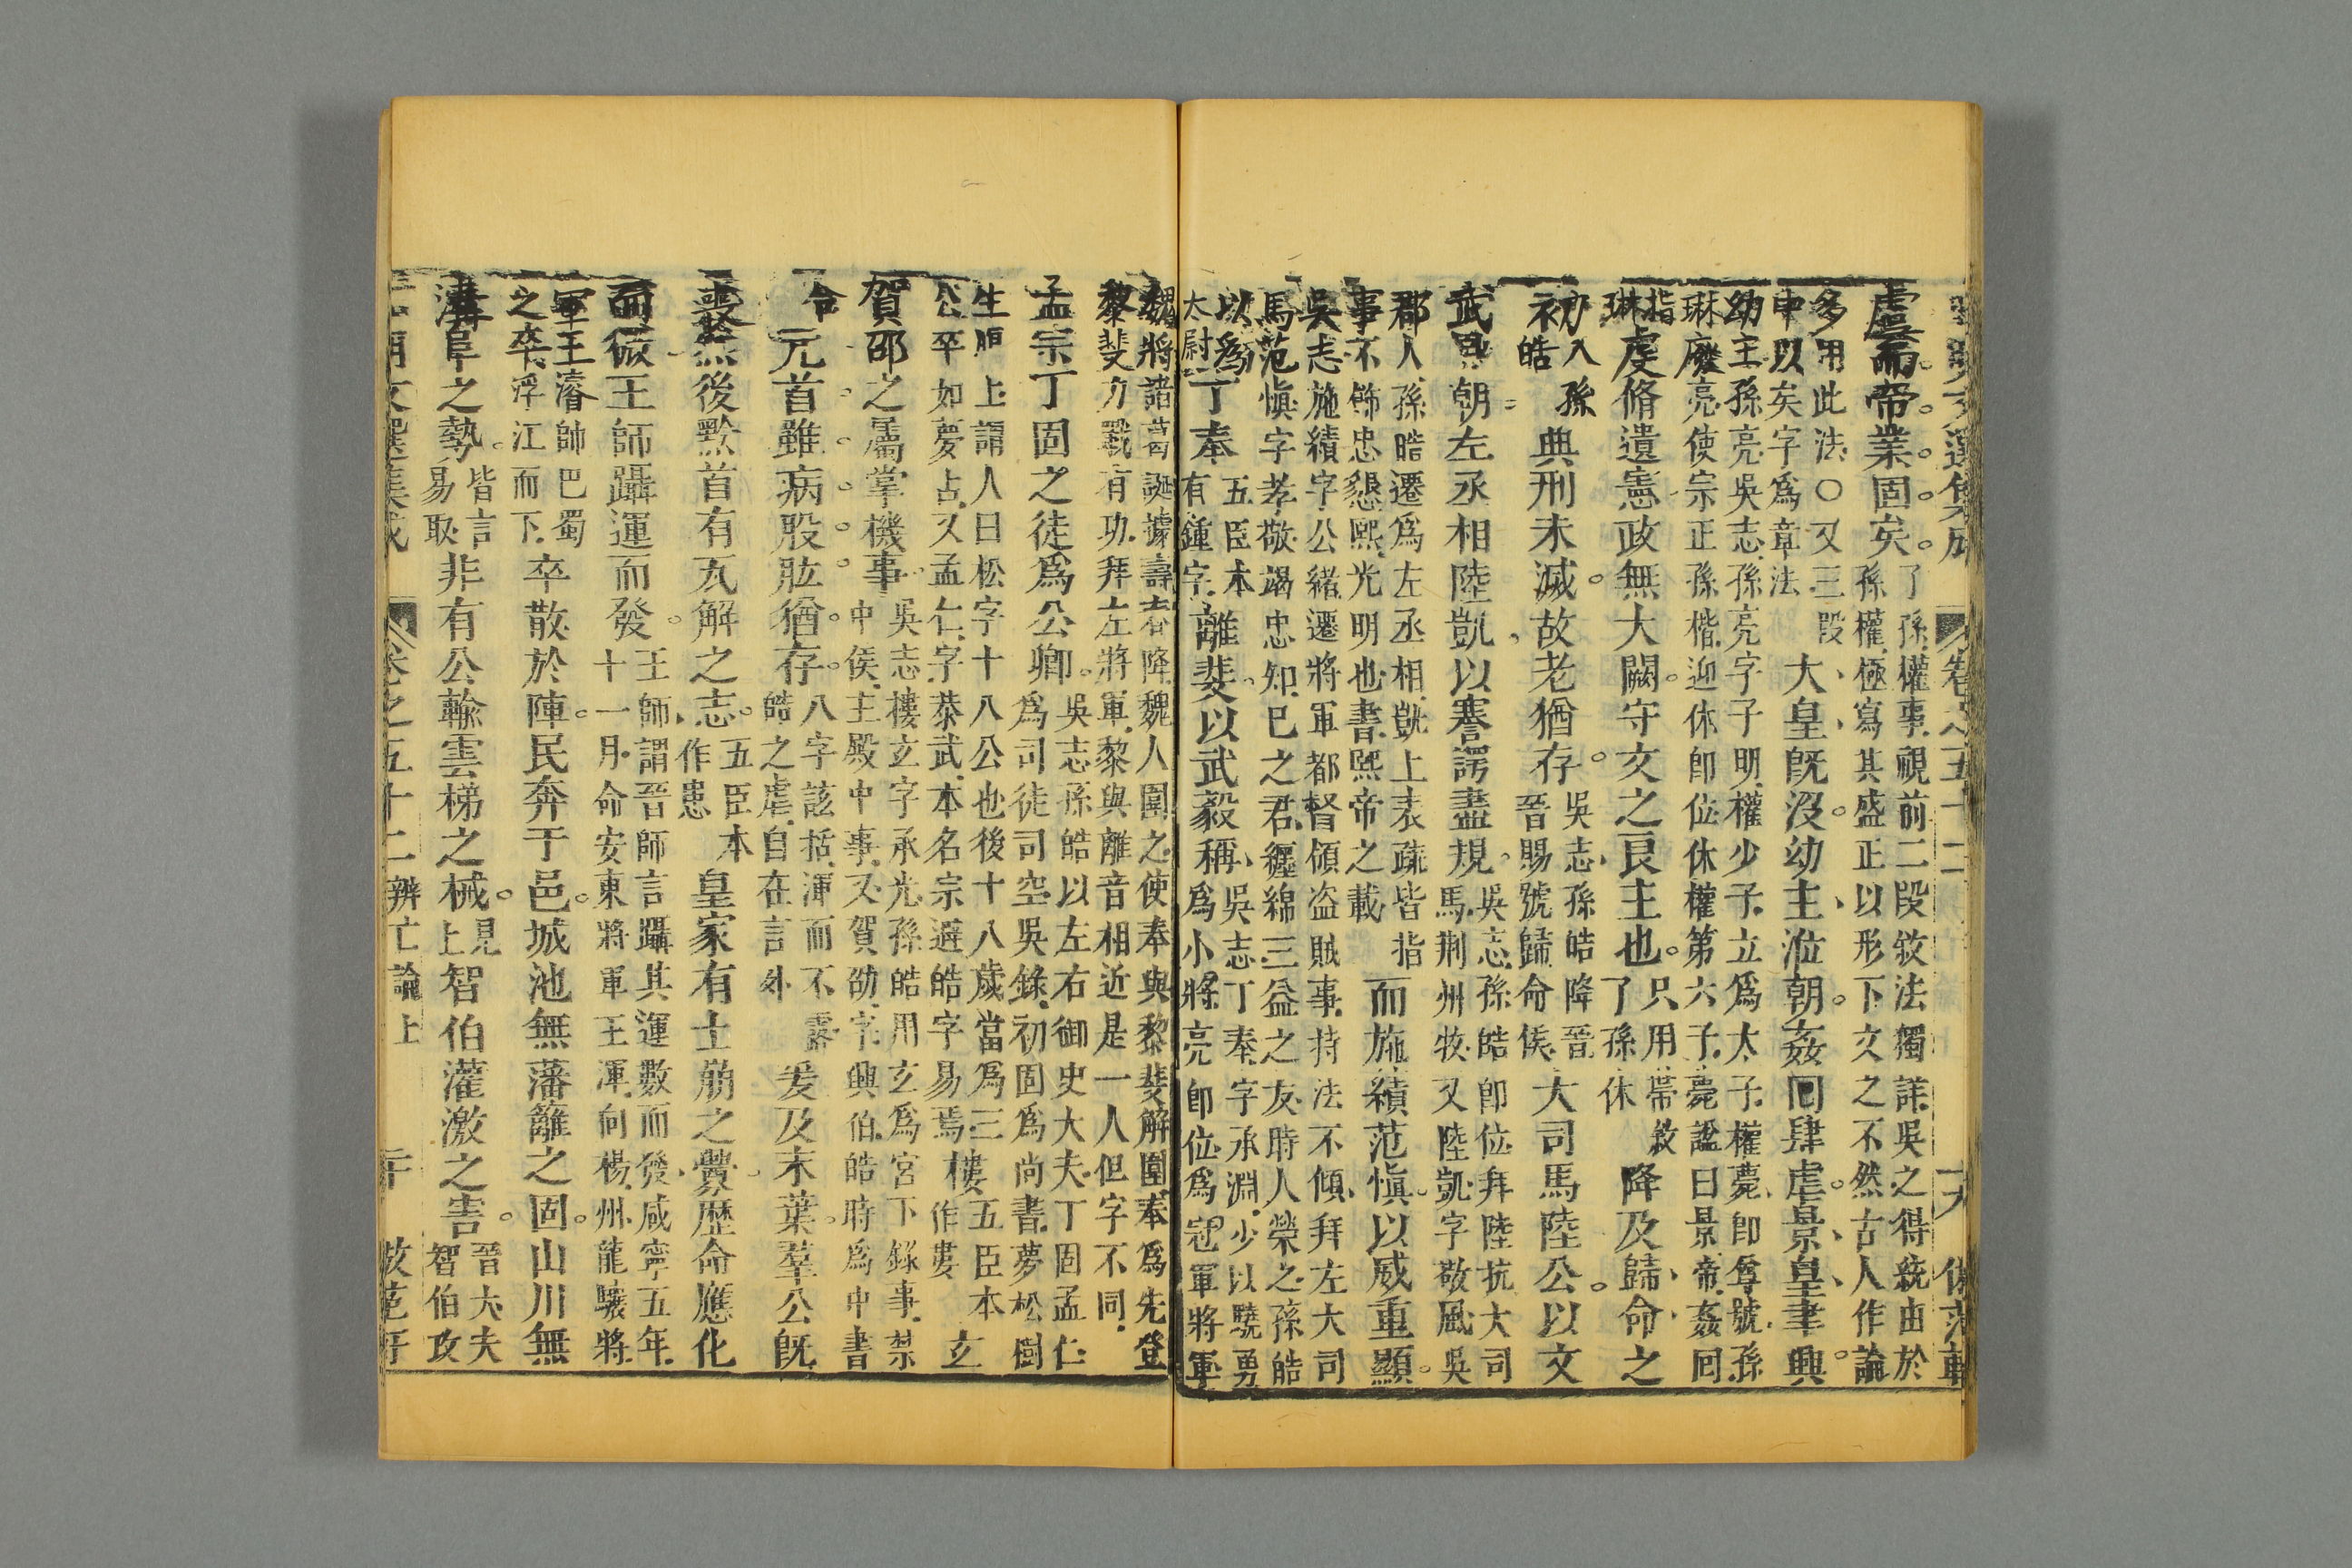 卷之五十二
虞而帝業固矣。了孫權事視前二段敘法獨詳吳之得統由於
孫權極寫其盛正以形下文之不然古人作論
多用此法○又三段
中以矣字爲章法
大皇既沒。幼主涖朝。姦回肆虐。景皇聿興。
幼主孫亮吳志孫亮字子明權少子立爲太子權薨即尊號孫
琳廢亮使宗正孫楷迎休即位休權第六子薨諡曰景帝姦回
指
琳
虔脩遺憲政無大闕。守文之良主也。只用帶敘
了孫休
降及歸命之
初
入孫
皓
典刑未滅。故老猶存。吳志孫皓降晉
晉賜號歸命侯
大司馬陸公。以文
武熙朝左丞相陸凱以謇諤盡規。吳志孫皓即位拜陸抗大司
馬荊州牧又陸凱字敬風吳
郡人孫皓遷爲左丞相凱上表疏皆指
事不飾忠懇熙光明也書熙帝之載
而施績范愼。以威重顯。
吳志施績字公緒遷將軍都督領盜賊事持法不傾拜左大司
馬范愼字孝敬竭忠知已之君纏綿三益之友時人榮之孫皓
以爲
太尉
丁奉五臣本
有鍾字
離斐。以武毅稱吳志丁奉字承淵少以驍勇
爲小將亮即位爲冠軍將軍
魏將諸葛誕據壽春降魏人圍之使奉與黎斐解圍奉爲先登
黎斐力戰有功拜左將軍黎與離音相近是一人但字不同
孟宗丁固之徒爲公卿。吳志孫皓以左右御史大夫丁固孟仁
爲司徒司空吳錄初固爲尚書夢松樹
生腹上謂人曰松字十八公也後十八歲當爲三
公卒如夢占又孟仁字恭武本名宗避皓字易焉
樓五臣本
作婁
玄
賀邵之屬掌機事吳志樓玄字承光孫皓用玄爲宮下錄事禁
中侯主殿中事又賀劭字興伯皓時爲中書
令
元首雖病股肱猶存。八字該括渾而不露
皓之虐自在言外
爰及末葉。羣公既
喪然後黔首有瓦解之志。五臣本
作患
皇家有土崩之釁歷命應化
而微王師躡運而發。王師謂晉師言躡其運數而發咸寧五年
十一月命安東將軍王渾向楊州龍驤將
軍王濬帥巴蜀
之卒浮江而下
卒散於陣。民奔于邑。城池無藩籬之固。山川無
溝阜之勢。皆言
易取
非有公輸雲梯之械。見
上
智伯灌激之害。晉大夫
智伯攻
卷之五十二 辨亡論上